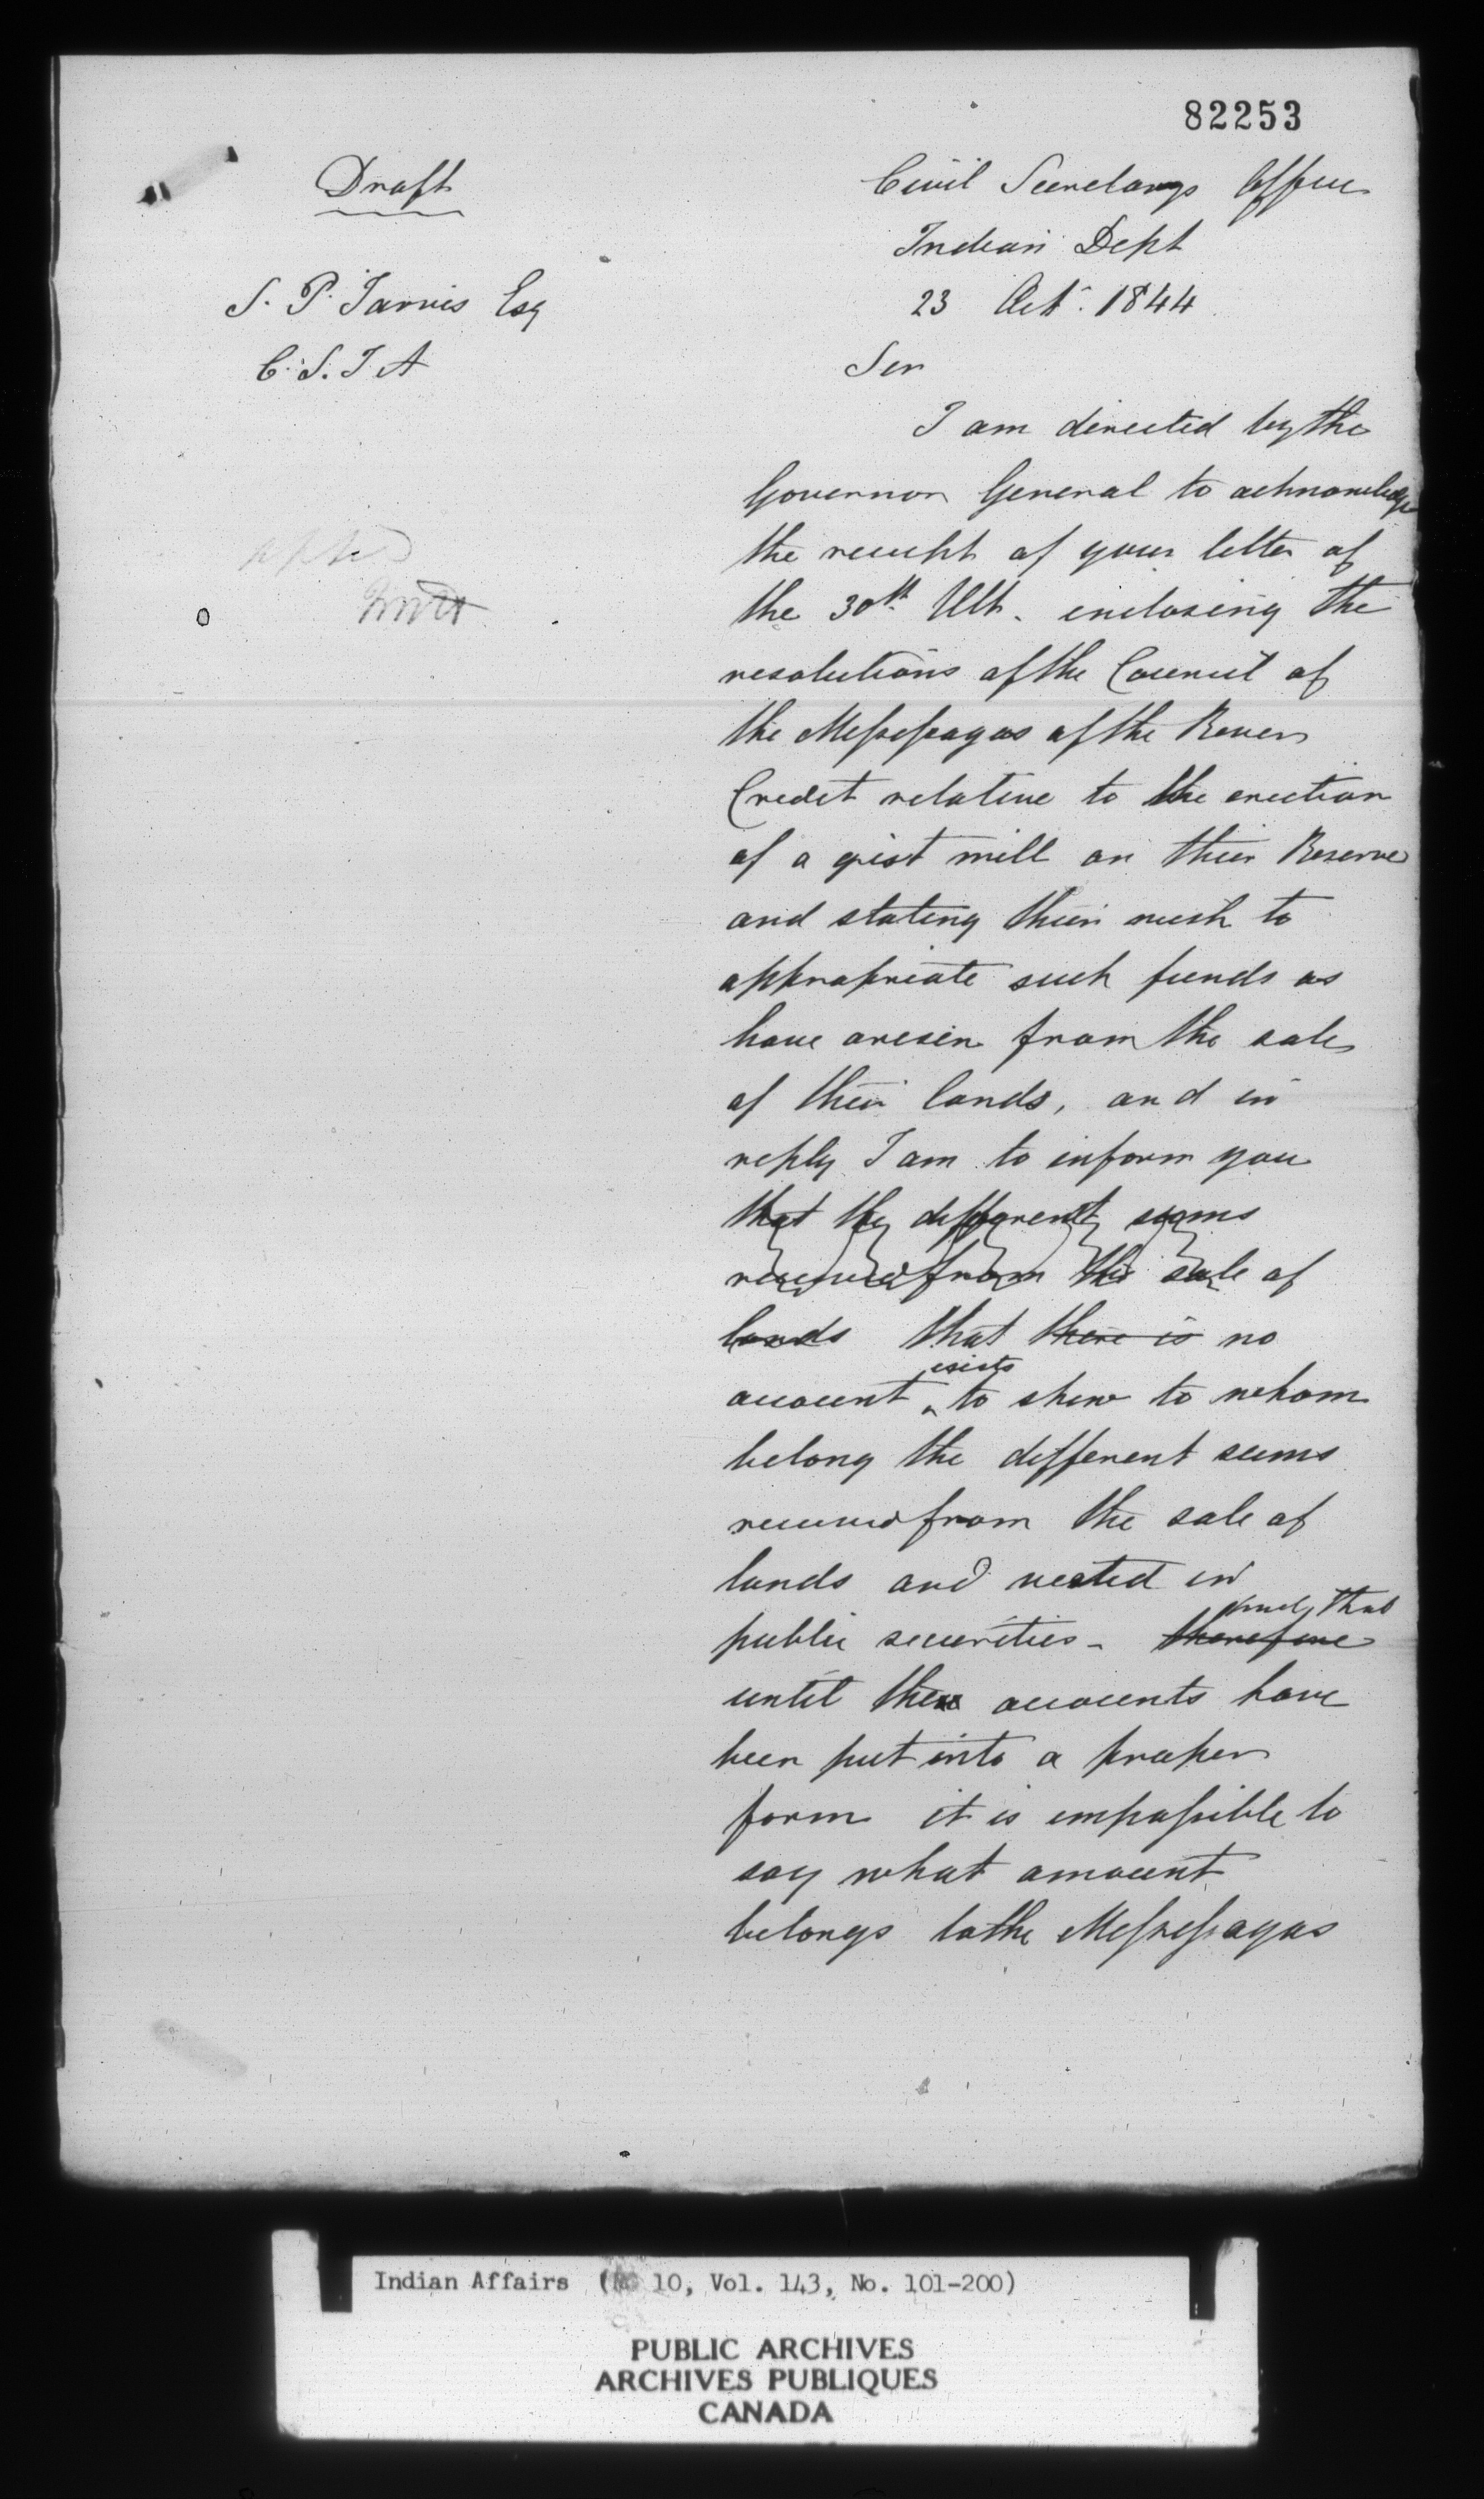 82253
Draft
S. P. Jarvis Esq
C. S. I A
Civil Secretarys Office
Indian Dept
23 Oct. 1844
Sir
I am directed by the
Governor General to acknowledge
the receipt of your letter of
the 30th Ult. inclosing the
resolutions of the Council of
the Messessagas of the River
Credit relative to the erection
of a grist mill on their Reserve
and stating their wish to
appropriate such funds as
have arisen from the sale
of their lands, and in
reply I am to inform you
that the different sums
received from the sale of
lands that there is no
exists
account to shew to whom
belong the different sums
received from the sale of
lands and vested in
and that
public securities - therefore
until these accounts have
been put into a proper
form it is impossible to
say what amount
belongs to the Messessagas
Indian Affairs (RG 10, Vol. 143, No. 101-200)
PUBLIC ARCHIVES
ARCHIVES PUBLIQUES
CANADA